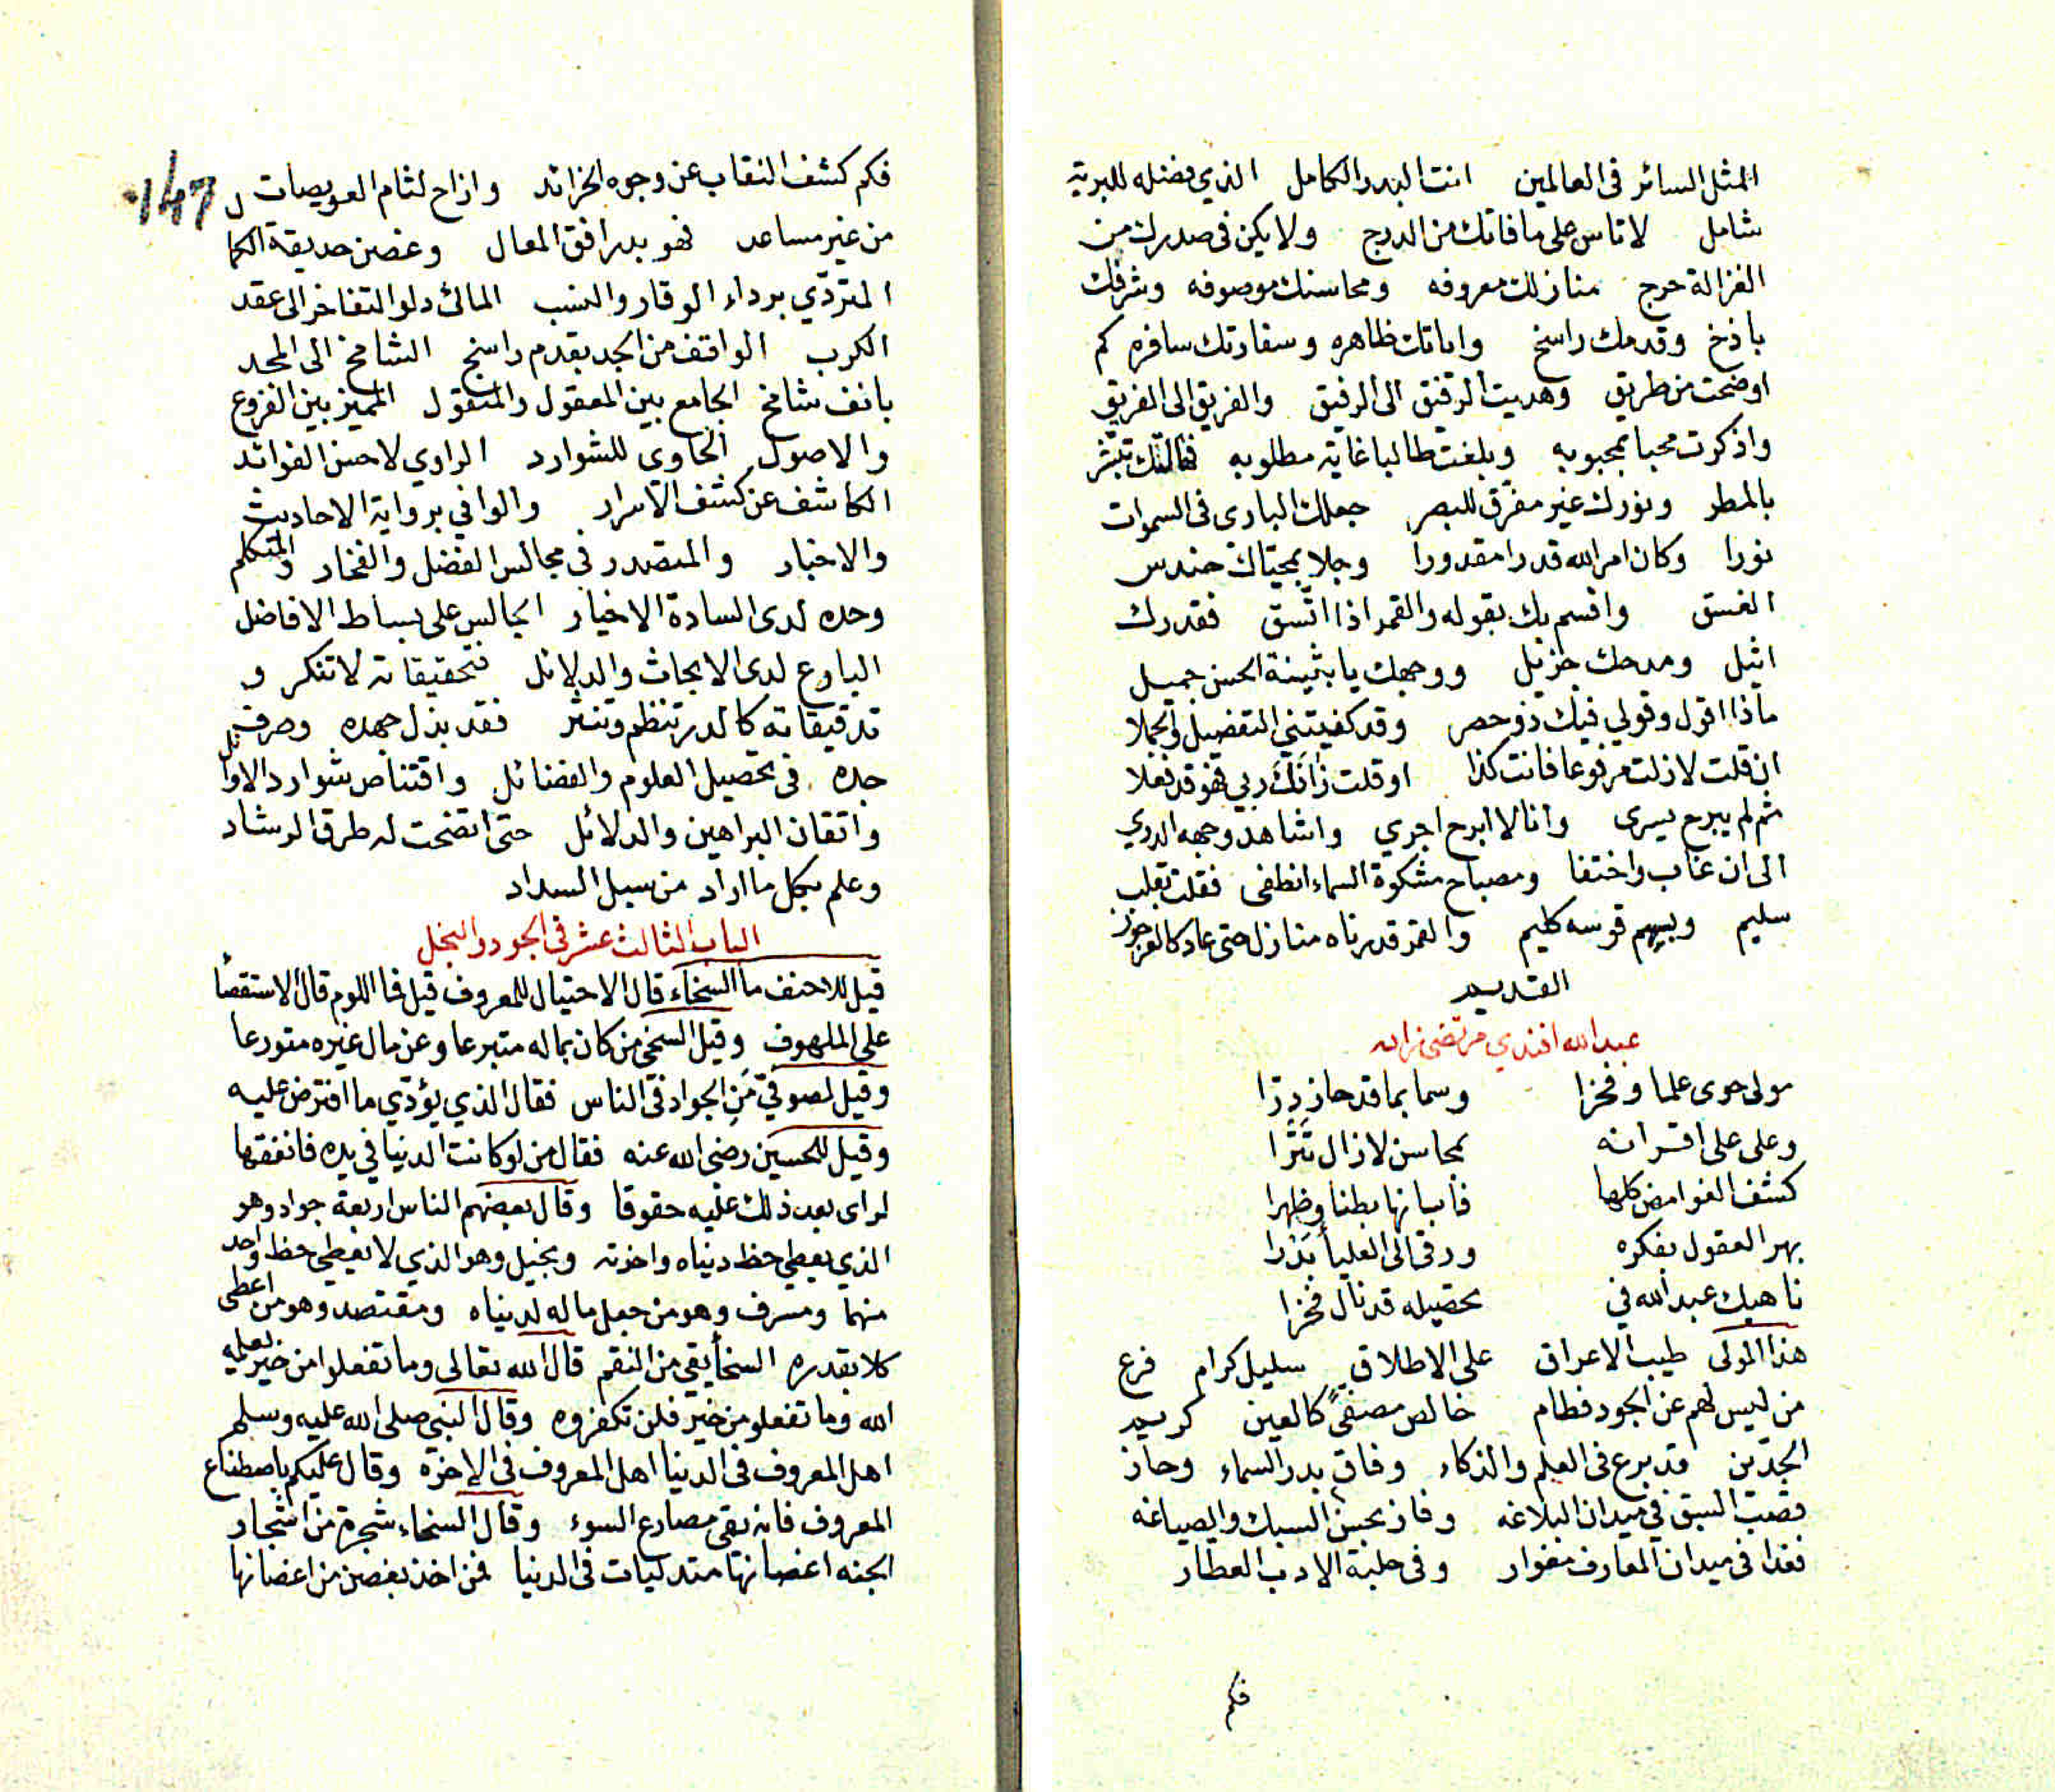 المثل السائر فى العالمين انت البدر الكامل الذي فضله للبرية
شامل لا تاس على ما فاتك من الدرج ولا يكن فى صدرك من
الغزالة حرج منازلك معروفه ومحاسنك موصوفه وشرفك
باذخ وقدمك راسخ واياتك ظاهره وسفارتك سافره كم
اوضحت من طريق وهديت الرفيق الى الرفيق والفريق الى الفريق
واذكرت محبا بمحبوبه وبلغت طالبا غاية مطلوبه فهالتك تبشر
بالمطر ونورك غير مفرق للبصر جعلك البارى فى السموات
نورا وكان امر الله قدرا مقدورا وجلا بمحياك حندس
الغسق واقسم بك بقوله والقمر اذا اتسق فقدرك
اثيل ومدحك جزيل ووجهك يا بثينة الحسن جميل
ماذا اقول وقولي فيك ذو حصر وقد كفيتني التفصيل والجملا
ان قلت لا زلت مرفوعا فانت كذا او قلت زانك ربي فهو قد فعلا
ثم لم يبرح يسرى وانا لا ابرح اجري واشاهد وجهه الدري
الى ان غاب واختفا ومصباح مشكوة السماء انطفى فقلت بقلب
سليم وبسهم قوسه كليم والقمر قدرناه منازل حتى عاد كالعرجون
القديم
عبدالله افندي مرتضى زاده
مولى حوى علما وفخرا وسما بما قد حاز دِرّا
وعلى على اقرانه بمحاسن لا زال تَتْرا
كشف الغوامض كلها فأبانها بطنا وظهرا
بهر العقول بفكره ورقى الى العلياء بَدْرا
ناهيك عبدالله في تحصيله قد نال فخرا
هذا المولى طيب الاعراق على الاطلاق سليل كرام فرع
من ليس لهم عن الجود فطام خالص مصفىً كالعين كريم
الجدّين قد برع فى العلم والذكاء وفاق بدر السماء وحاز
قصب السبق في ميدان البلاغه وفاز بحسن السبك والصياغه
فغدا فى ميدان المعارف مغوار وفى حلبة الادب العطار
فكم
147
فكم كشف النقاب عن وجوه الخرائد وازاح لثام العويصات
من غير مساعد فهو بدر افق المعال وغصن حديقة الكمال
المتردّي برداء الوقار والنسب المالئ دلو التفاخر الى عقد
الكرب الواقف من الجد بقدم راسخ الشامخ الى المجد
بانف شامخ الجامع بين المعقول والمنقول المميز بين الفروع
والاصول الحاوى للشوارد الراوي لاحسن الفوائد
الكاشف عن كشف الاسرار والوافي برواية الاحاديث
والاخبار والمتصدر في مجالس الفضل والفخار والمتكلم
وحده لدى السادة الاخيار الجالس على بساط الافاضل
البارع لدى الابحاث والدلائل فتحقيقاته لا تنكر و
تدقيقاته كالدر تنظم وتنثر فقد بذل جهده وصرف
جده فى تحصيل العلوم والفضائل واقتناص شوارد الاوائل
واتقان البراهين والدلائل حتى اتضحت له طرق الرشاد
وعلم بكل ما اراد من سبل السداد
الباب الثالث عشر فى الجود والبخل
قيل للاحنف ما السخاء قال الاحتيال للمعروف قيل فما اللوم قال الاستقصاء
على الملهوف وقيل السخي من كان بماله متبرعا وعن مال غيره متورعا
وقيل لصوفيّ مَنِ الجواد فى الناس فقال الذي يؤدّي ما افترض عليه
وقيل للحسين رضى الله عنه فقال من لو كانت الدنيا في يده فانفقها
لراى بعد ذلك عليه حقوقا وقال بعضهم الناس اربعة جواد وهو
الذي يعطى حظ دنياه واخرته وبخيل وهو الذي لا يعطي حظ واحد
منهما ومسرف وهو من جعل ماله لدنياه ومقتصد وهو من اعطى
كلا بقدره السخاء يقي من النقم قال الله تعالى وما تفعلوا من خير يعلمه
الله وما تفعلو من خير فلن تكفروه وقال النبي صلى الله عليه وسلم
اهل المعروف فى الدنيا اهل المعروف فى الاخرة وقال عليكم باصطناع
المعروف فانه يقى مصارع السوء وقال السخاء شجرة من اشجار
الجنه اغصانها متدليات فى الدنيا فمن اخذ بغصن من اغصانها